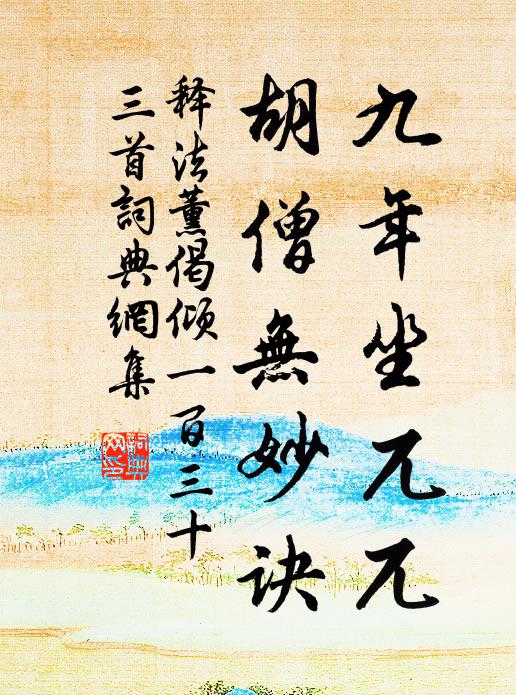 九年坐兀兀
胡僧無妙訣
释法薰偈倾一百三十
三首詞典網集